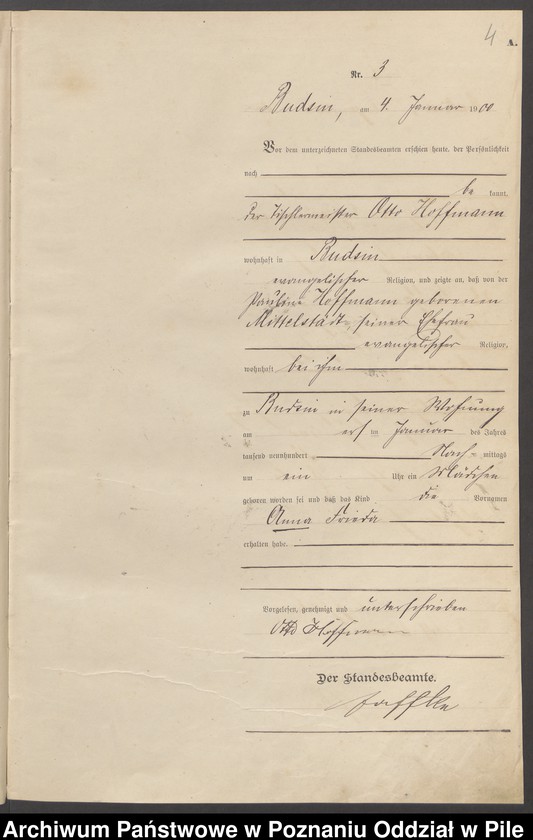 4
A.
Nr. 3
Budsin, am 4. Januar 1900
Vor dem unterzeichneten Standesbeamten erschien heute, der Persönlichkeit
nach
be kannt,
der Tischlermeister Otto Hoffmann
wohnhaft in Budsin
evangelischer Religion, und zeigte an, daß von der
Pauline Hoffmann geborenen
Mittelstädt, seiner Ehefrau
evangelischer Religion,
wohnhaft bei ihm
zu Budsin in seiner Wohnung
am ersten Januar des Jahres
tausend neunhundert Nach- mittags
um ein Uhr ein Mädchen
geboren worden sei und daß das Kind die Vornamen
Anna Frieda
erhalten habe.
Vorgelesen, genehmigt und unterschrieben
Otto Hoffmann
Der Standesbeamte.
Archiwum Państwowe w Poznaniu Oddział w Pile